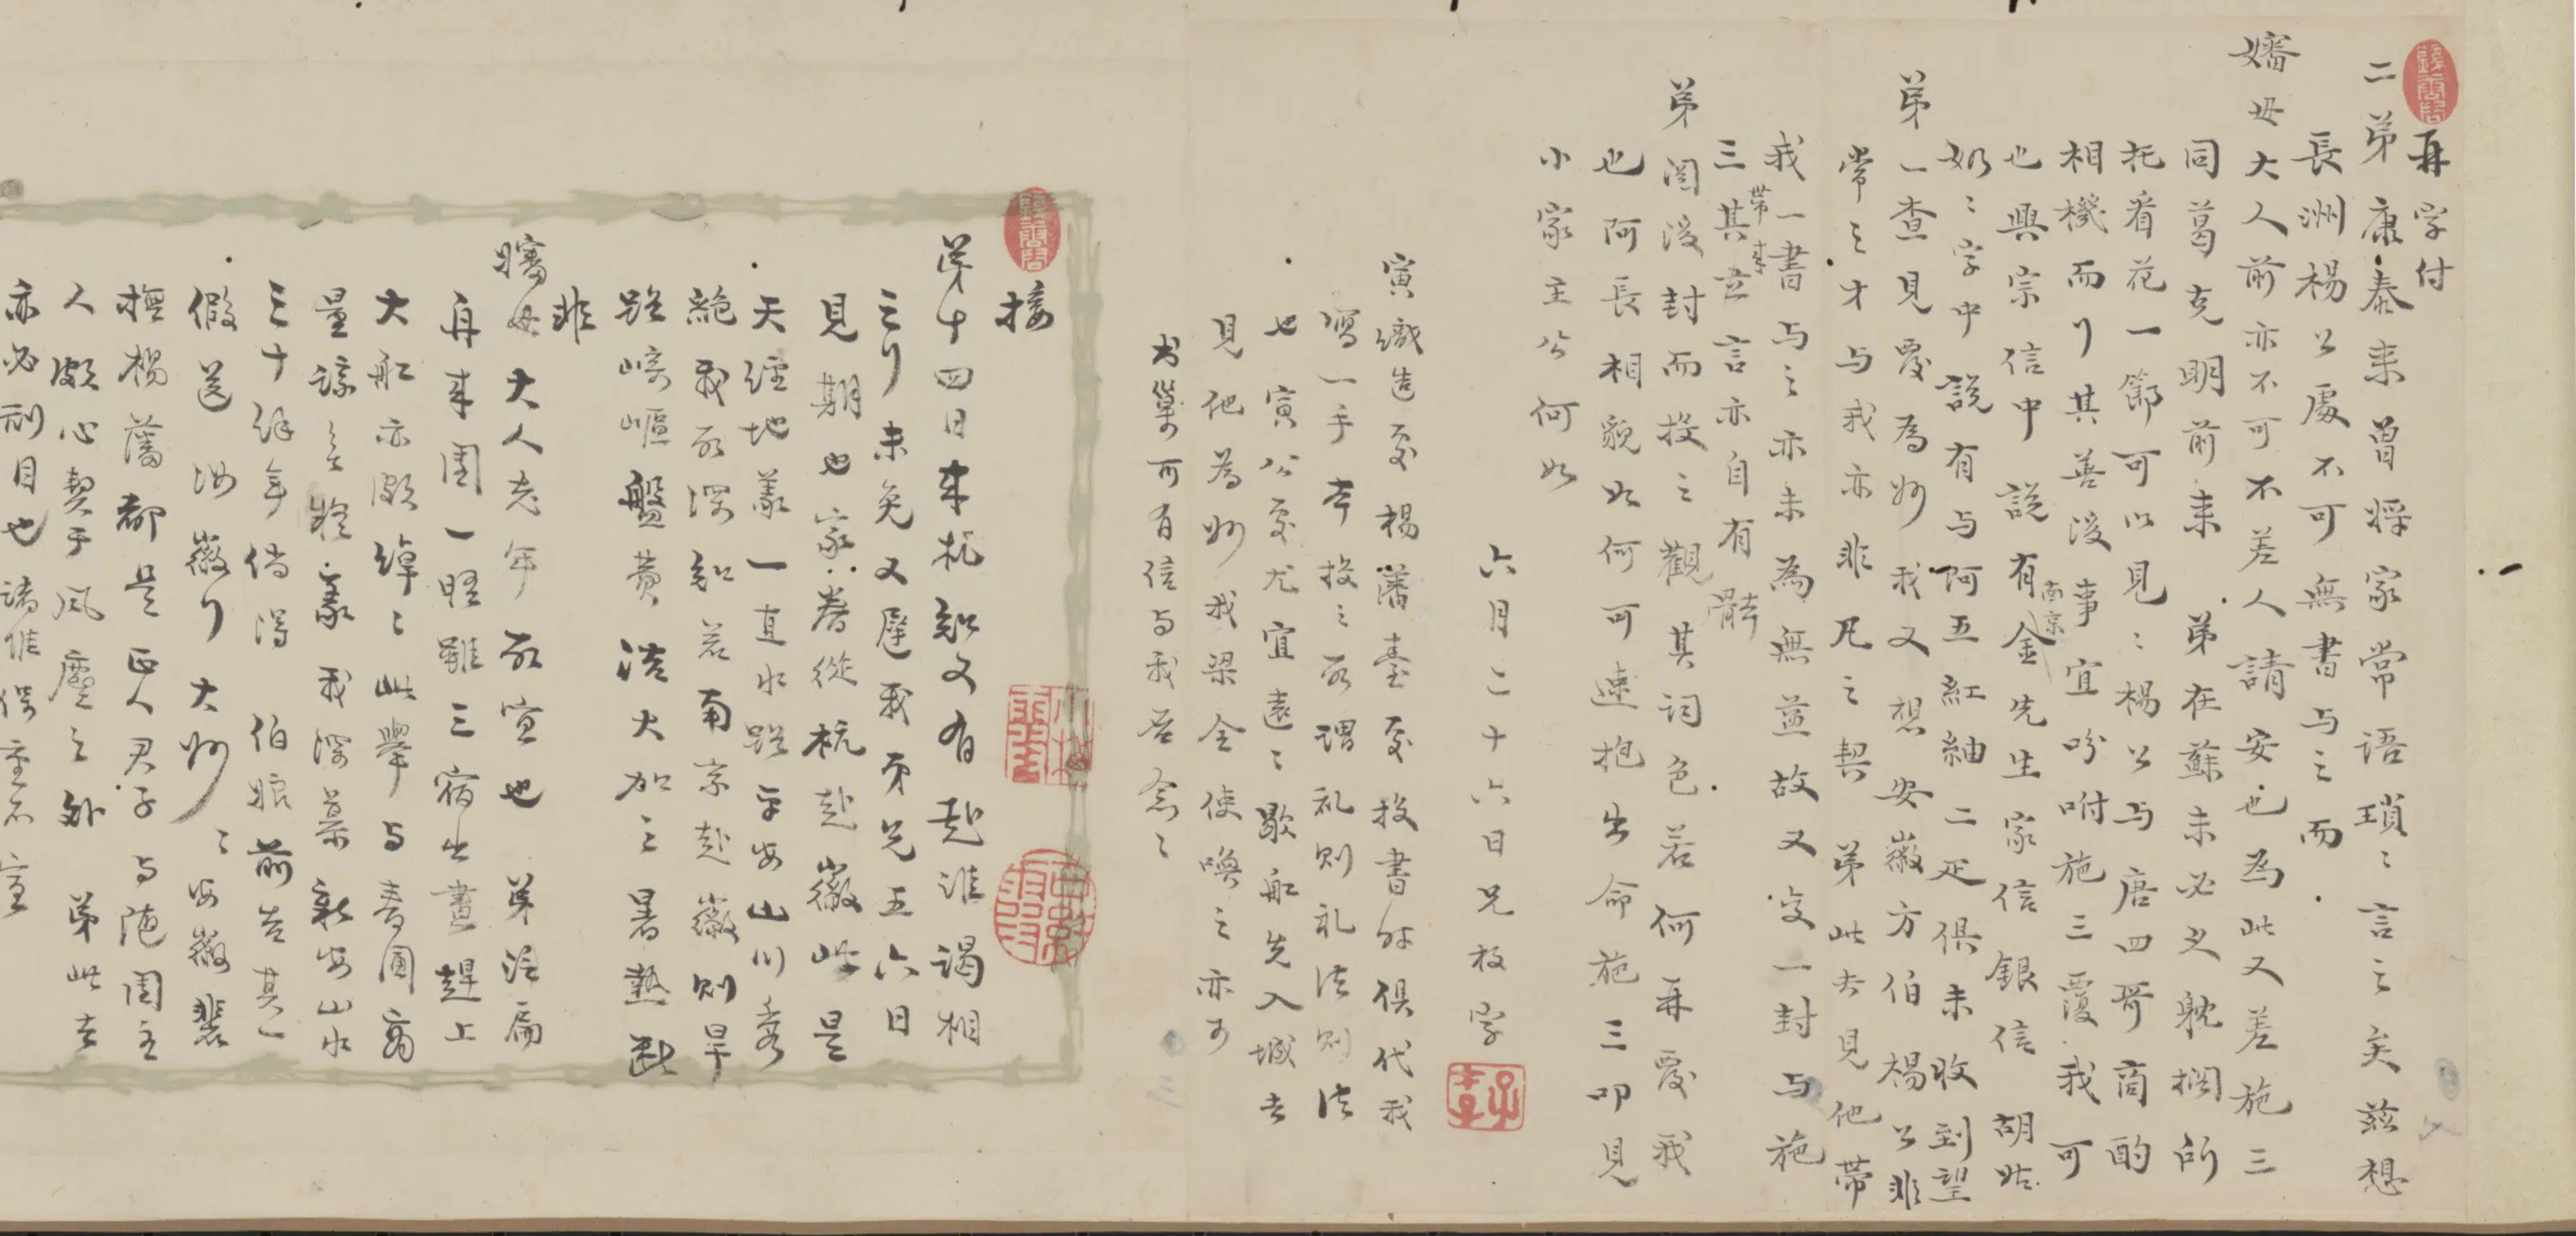 再字付
二弟康泰來曾將家常語瑣〻言之矣茲想
長洲楊公處不可無書与之而
嬸母大人前亦不可不差人請安也為此又差施三
同葛克明前來 弟在蘇未必久躭擱所
托看花一節可以見〻楊公与唐四哥商酌
相機而行其善後事宜吩咐施三覆我可
也興宗信中說有南京金先生家信銀信胡姑
奶〻字中說有与阿五紅紬二疋俱未收到望
弟一查見覆為妙我又想安徽方伯楊公非
常之才与我亦非凡之契 弟此去見他帶
我一書与之亦未為無益故又交一封与施
三帶來其立言亦自有體
弟閱後封而投之觀其詞色若何再覆我
也阿長相貌如何可速抱出命施三叩見
小家主公何如
六月二十六日兄枚字
寅織造處楊藩臺處投書時俱代我
寫一手本投之所謂礼則礼法則法
也寅公處尤宜遠〻歇船先入城去
見他為妙我梁全使喚之亦可
也 可有信与我否念〻
接
弟十四日來杭知又有赴淮謁相
之行未免又遲我弟兄五六日
見期也家眷從杭赴徽此是
天經地義一直水路平安山川秀
絕我所深知若南京赴徽則旱
路崎嶇盤費浩大加之暑熱斷
非
嬸母大人老年所宜也 弟渡扁
舟來園一晤雖三宿出晝趕上
大船亦頗綽〻此舉与青園商
量諒無疑義我深慕新安山水
三十餘年倘得 伯娘前去某
假送 汝徽行大妙〻安徽裴
撫楊藩都是正人君子与隨園主
人頗心契于風塵之外 弟此去
亦必刮目也諸惟保重不宣